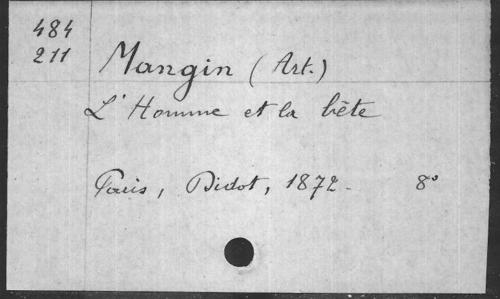 484
211
Mangin (Art.)
L'Homme et la bête
Paris, Didot, 1872. 8°